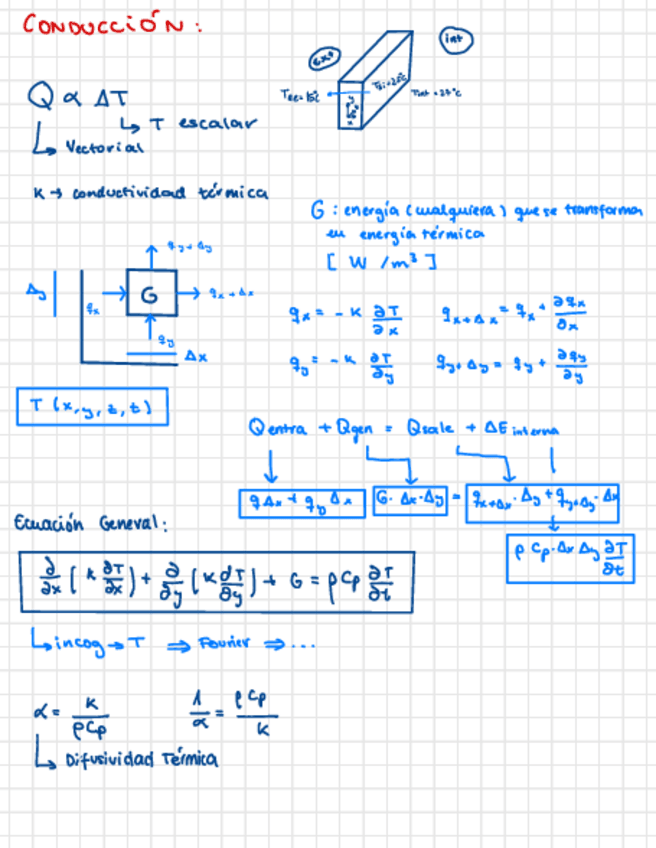 CONDUCCIÓN:
ext
int
Q ∝ ΔT
↳ T escalar
↳ Vectorial
K → conductividad térmica
G : energía (cualquiera) que se transforma
en energía térmica
[ W / m³ ]
q_y+Δy
Δy
q_x
G
q_x+Δx
q_y
Δx
q_x = - K ∂T/∂x
q_x+Δx = q_x + ∂q_x/∂x
q_y = - K ∂T/∂y
q_y+Δy = q_y + ∂q_y/∂y
T (x, y, z, t)
Qentra + Qgen = Qsale + ΔE interna
G · Δx · Δy = q_x+Δx · Δy + q_y+Δy · Δx
ρ Cp · Δx Δy ∂T/∂t
Ecuación General:
∂/∂x ( K ∂T/∂x ) + ∂/∂y ( K dT/∂y ) + G = ρ Cp ∂T/∂t
↳ incog → T ⇒ Fourier ⇒ ...
α = K / ρCp
1/α = ρ Cp / K
↳ Difusividad Térmica